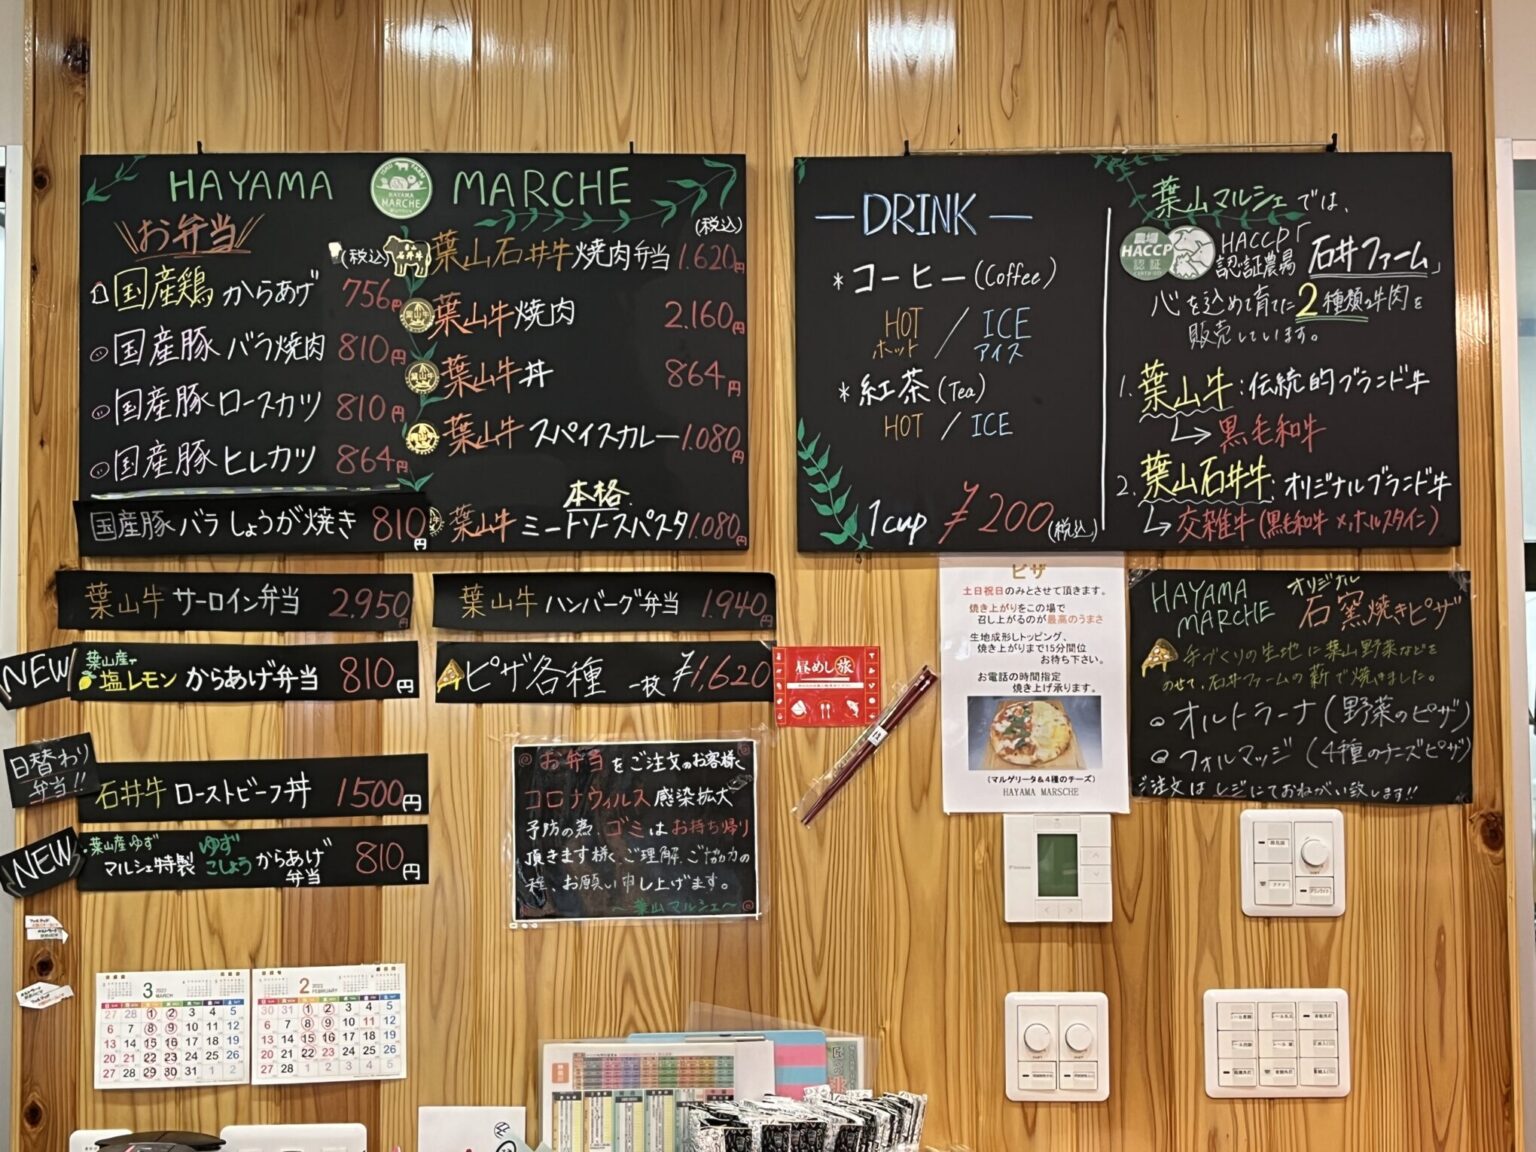 HAYAMA MARCHE
お弁当
(税込)
国産鶏 からあげ 756円
国産豚 バラ焼肉 810円
国産豚 ロースカツ 810円
国産豚 ヒレカツ 864円
国産豚 バラ しょうが焼き 810円
(税込)
石井牛
葉山石井牛 焼肉弁当 1.620円
葉山牛 焼肉 2.160円
葉山牛 丼 864円
葉山牛 スパイスカレー 1.080円
本格
葉山牛 ミートソースパスタ 1.080円
葉山牛 サーロイン弁当 2.950円
葉山牛 ハンバーグ弁当 1.940円
NEW
葉山産の
塩レモン からあげ弁当 810円
ピザ各種 一枚 ¥1,620
日替わり
弁当!!
石井牛 ローストビーフ丼 1500円
NEW
葉山産ゆず
マルシェ特製 ゆずこしょう からあげ弁当 810円
お弁当をご注文のお客様へ
コロナウィルス感染拡大
予防の為、ゴミはお持ち帰り
頂きます様、ご理解、ご協力の
程、お願い申し上げます。
〜葉山マルシェ〜
昼めし旅
— DRINK —
* コーヒー (Coffee)
HOT / ICE
ホット アイス
* 紅茶 (Tea)
HOT / ICE
1cup ¥200 (税込)
葉山マルシェでは、
農場
HACCP
認証
HACCP
認証農場
「石井ファーム」
心を込めて育てた2種類の牛肉を
販売しています。
1. 葉山牛:伝統的ブランド牛
→ 黒毛和牛
2. 葉山石井牛:オリジナルブランド牛
→ 交雑牛(黒毛和牛×ホルスタイン)
ピザ
土日祝日のみとさせて頂きます。
焼き上がりをこの場で
召し上がるのが最高のうまさ
生地成形しトッピング、
焼き上がりまで15分間位
お待ち下さい。
お電話の時間指定
焼き上げ承ります。
(マルゲリータ&4種のチーズ)
HAYAMA MARSCHE
HAYAMA
MARCHE
オリジナル
石窯焼きピザ
手づくりの生地に葉山野菜などを
のせて、石井ファームの薪で焼きました。
オルトラーナ(野菜のピザ)
フォルマッジ(4種のチーズピザ)
ご注文はレジにておねがい致します!!
3 2022 MARCH
27 28 1 2 3 4 5
6 7 8 9 10 11 12
13 14 15 16 17 18 19
20 21 22 23 24 25 26
27 28 29 30 31 1 2
2 2022 FEBRUARY
30 31 1 2 3 4 5
6 7 8 9 10 11 12
13 14 15 16 17 18 19
20 21 22 23 24 25 26
27 28 1 2 3 4 5